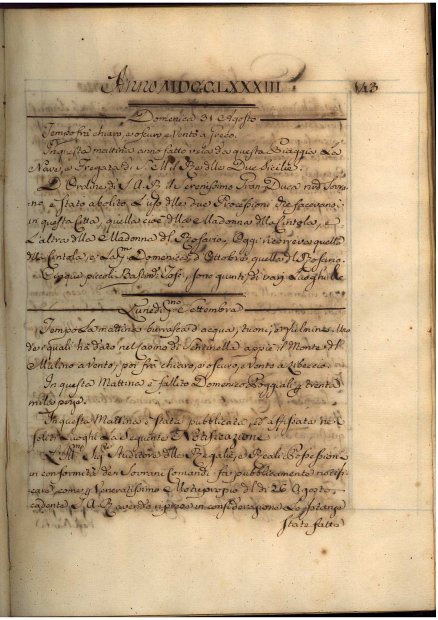 Anno MDCCLXXXIII 143
Domenica 31 Agosto
Tempo frà chiaro, e oscuro e Vento a Greco.
In questa mattina anno fatto vela da questa Spiaggia La
Nave, e Fregata di S. M. il Re delle Due Sicilie.
D'Ordine di S. A. R. il Serenissimo Gran Duca nostro Sovra-
no, è stato abolito l'uso delle due Processioni che facevansi
in questa Città, quella cioè della Madonna della Cintola, e
l'altra della Madonna del Rosario, Oggi ricorreva quella
della Cintola, e la Domenica d'Ottobre quella del Rosario.
piccoli Bastimenti sono giunti di varj Luoghi
Lunedì pmo Settembre
Tempo la mattina burrascoso d'acqua, tuoni, e fulmini. Uno
de quali hà dato nel Casino di Sentinella appiè il Monte del
Mulino a Vento, poi frà chiaro, e oscuro, e Vento a Libeccio.
In questa Mattina è fallito Domenico trenta
mila pezze.
In questa Mattina è stata pubblicata, ed affissata ne
soliti Luoghi La seguente Notificazione
Auditore delle Regalie, e Reali Possessioni
in conformità de Sovrani Comandi fà pubblicamente notifi-
care, come Veneratissimo Motuproprio del dì 26 Agosto
cadente S. A. R. avendo preso in considerazione Lo
stato fatto